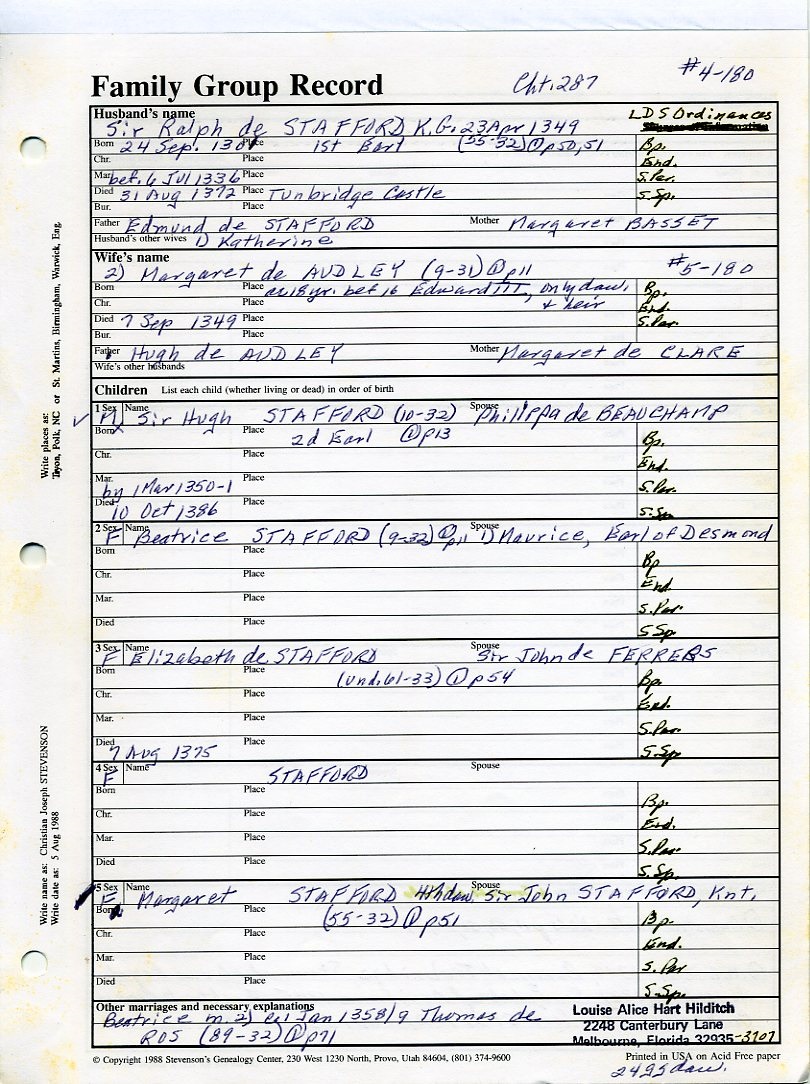 Family Group Record Cht. 287 #4-180
Husband's name LDS Ordinances
Sir Ralph de STAFFORD K.G. 23 Apr 1349
Born 24 Sep. Place 1st Earl (55-32) ① p50,51 Bp.
Chr. Place End.
Mar. bef. 6 Jul 1336 Place S.Par.
Died 31 Aug 1372 Place Tunbridge Castle S.Sp.
Bur. Place
Father Edmund de STAFFORD Mother Margaret BASSET
Husband's other wives 1) Katherine
Wife's name #5-180
2) Margaret de AUDLEY (9-31) ① p11
Born Place ae 18 yr. bef 16 Edward III, only dau. Bp.
Chr. Place & heir End.
Died 7 Sep 1349 Place S.Par.
Bur. Place
Father Hugh de AUDLEY Mother Margaret de CLARE
Wife's other husbands
Children List each child (whether living or dead) in order of birth
1 Sex M Name Sir Hugh STAFFORD (10-32) Spouse Philippa de BEAUCHAMP
Born Place 2d Earl ① p13 Bp.
Chr. Place End.
Mar. by 1 Mar 1350-1 Place S.Par.
Died 10 Oct 1386 Place S.Sp.
2 Sex F Name Beatrice STAFFORD (9-32) ① p11 Spouse 1) Maurice, Earl of Desmond
Born Place Bp
Chr. Place End.
Mar. Place S.Par.
Died Place S Sp.
3 Sex F Name Elizabeth de STAFFORD Spouse Sir John de FERRERS
Born Place (und. 61-33) ① p54 Bp.
Chr. Place End.
Mar. Place S.Par.
Died 7 Aug 1375 Place S.Sp.
4 Sex F Name STAFFORD Spouse
Born Place Bp.
Chr. Place End.
Mar. Place S.Par.
Died Place S.Sp.
5 Sex F Name Margaret STAFFORD 4th dau. Spouse Sir John STAFFORD, Knt.
Born Place (55-32) ① p51 Bp.
Chr. Place End.
Mar. Place S.Par
Died Place S.Sp.
Other marriages and necessary explanations
Beatrice m. 2) Jan 1358/9 Thomas de
ROS (89-32) ① p71
Louise Alice Hart Hilditch
2248 Canterbury Lane
Melbourne, Florida 32935-3707
© Copyright 1988 Stevenson's Genealogy Center, 230 West 1230 North, Provo, Utah 84604, (801) 374-9600 Printed in USA on Acid Free paper
Write places as: Tryon, Polk, NC or St. Martins, Birmingham, Warwick, Eng.
Write name as: Christian Joseph STEVENSON
Write date as: 5 Aug 1988